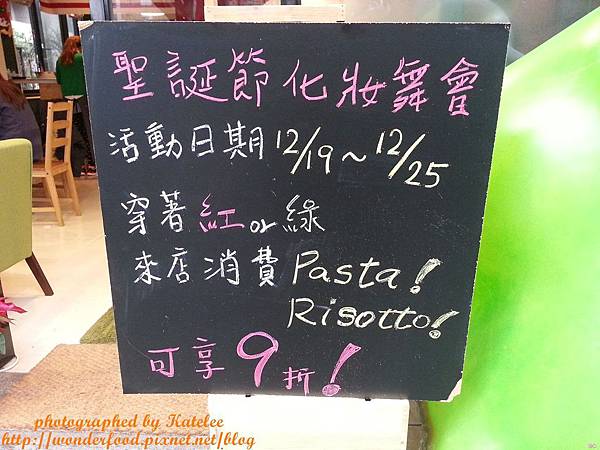 聖誕節化妝舞會
活動日期12/19~12/25
穿著紅or綠
來店消費Pasta!
Risotto!
可享9折!
photographed by Katelee
http://wonderfood.pixnet.net/blog